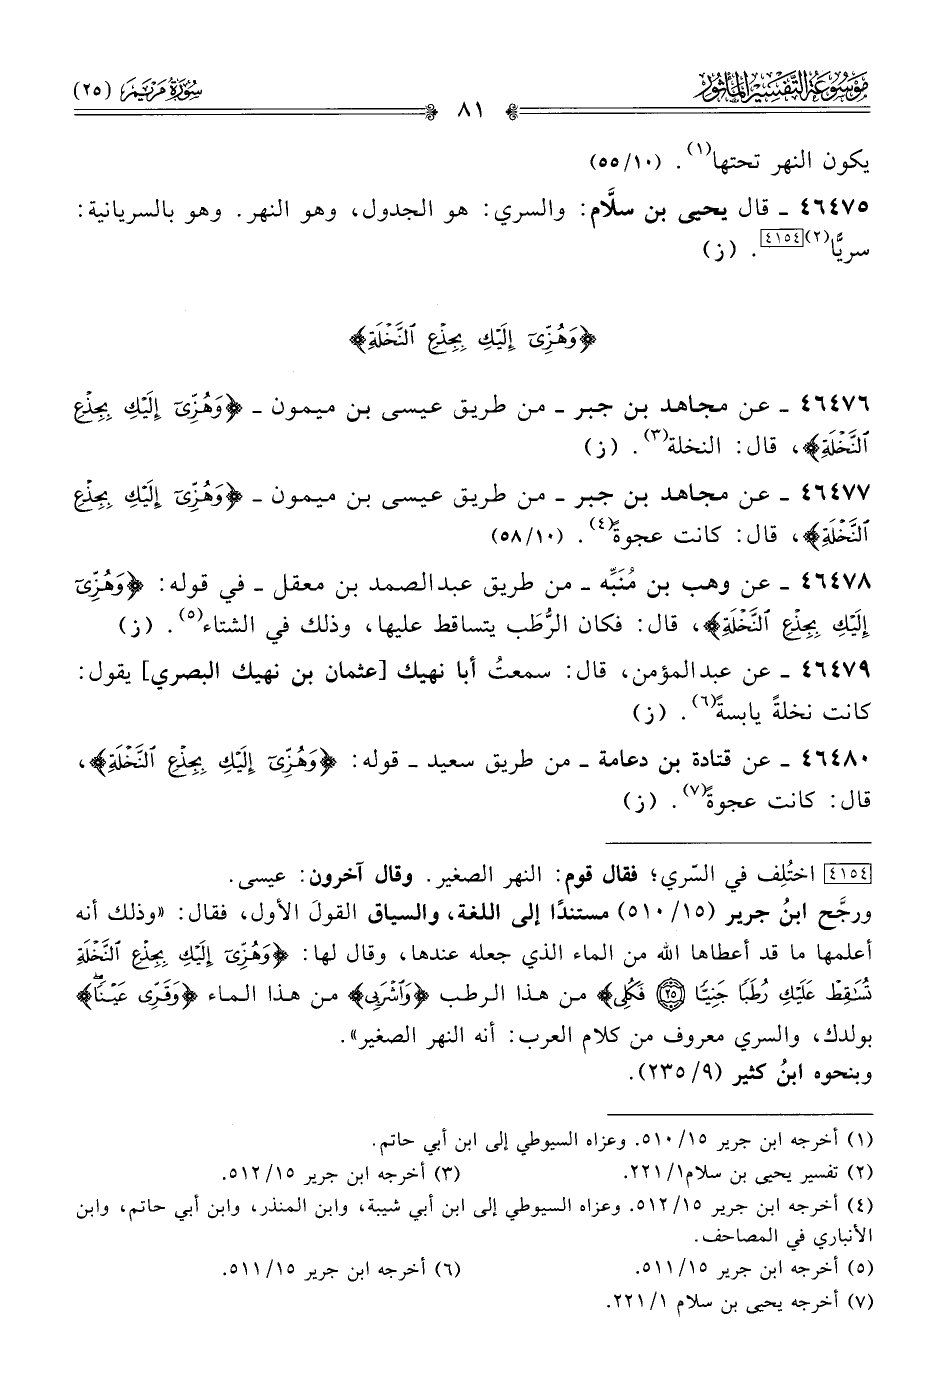 مَوْسُوعَةُ التَّفْسِيرِ المَأْثُور
٨١
سُورَةُ مَرْيَمَ (٢٥)
يكون النهر تحتها(١). (١٠/٥٥)
٤٦٤٧٥ ـ قال يحيى بن سلَّام: والسري: هو الجدول، وهو النهر. وهو بالسريانية:
سريًّا(٢)[٤١٥٤]. (ز)
﴿وَهُزِّىٓ إِلَيْكِ بِجِذْعِ ٱلنَّخْلَةِ﴾
٤٦٤٧٦ ـ عن مجاهد بن جبر ـ من طريق عيسى بن ميمون ـ ﴿وَهُزِّىٓ إِلَيْكِ بِجِذْعِ
ٱلنَّخْلَةِ﴾، قال: النخلة(٣). (ز)
٤٦٤٧٧ ـ عن مجاهد بن جبر ـ من طريق عيسى بن ميمون ـ ﴿وَهُزِّىٓ إِلَيْكِ بِجِذْعِ
ٱلنَّخْلَةِ﴾، قال: كانت عجوةً(٤). (١٠/٥٨)
٤٦٤٧٨ ـ عن وهب بن مُنَبِّه ـ من طريق عبدالصمد بن معقل ـ في قوله: ﴿وَهُزِّىٓ
إِلَيْكِ بِجِذْعِ ٱلنَّخْلَةِ﴾، قال: فكان الرُّطَب يتساقط عليها، وذلك في الشتاء(٥). (ز)
٤٦٤٧٩ ـ عن عبدالمؤمن، قال: سمعتُ أبا نهيك [عثمان بن نهيك البصري] يقول:
كانت نخلةً يابسةً(٦). (ز)
٤٦٤٨٠ ـ عن قتادة بن دعامة ـ من طريق سعيد ـ قوله: ﴿وَهُزِّىٓ إِلَيْكِ بِجِذْعِ ٱلنَّخْلَةِ﴾،
قال: كانت عجوةً(٧). (ز)
[٤١٥٤] اختُلِف في السّري؛ فقال قوم: النهر الصغير. وقال آخرون: عيسى.
ورجَّح ابنُ جرير (١٥/٥١٠) مستندًا إلى اللغة، والسياق القولَ الأول، فقال: «وذلك أنه
أعلمها ما قد أعطاها الله من الماء الذي جعله عندها، وقال لها: ﴿وَهُزِّىٓ إِلَيْكِ بِجِذْعِ ٱلنَّخْلَةِ
تُسَٰقِطْ عَلَيْكِ رُطَبًا جَنِيًّا ۝٢٥ فَكُلِى﴾ من هذا الرطب ﴿وَٱشْرَبِى﴾ من هذا الماء ﴿وَقَرِّى عَيْنًاۖ﴾
بولدك، والسري معروف من كلام العرب: أنه النهر الصغير».
وبنحوه ابنُ كثير (٩/٢٣٥).
(١) أخرجه ابن جرير ١٥/٥١٠. وعزاه السيوطي إلى ابن أبي حاتم.
(٢) تفسير يحيى بن سلام١/٢٢١.
(٣) أخرجه ابن جرير ١٥/٥١٢.
(٤) أخرجه ابن جرير ١٥/٥١٢. وعزاه السيوطي إلى ابن أبي شيبة، وابن المنذر، وابن أبي حاتم، وابن
الأنباري في المصاحف.
(٥) أخرجه ابن جرير ١٥/٥١١.
(٦) أخرجه ابن جرير ١٥/٥١١.
(٧) أخرجه يحيى بن سلام ١/٢٢١.